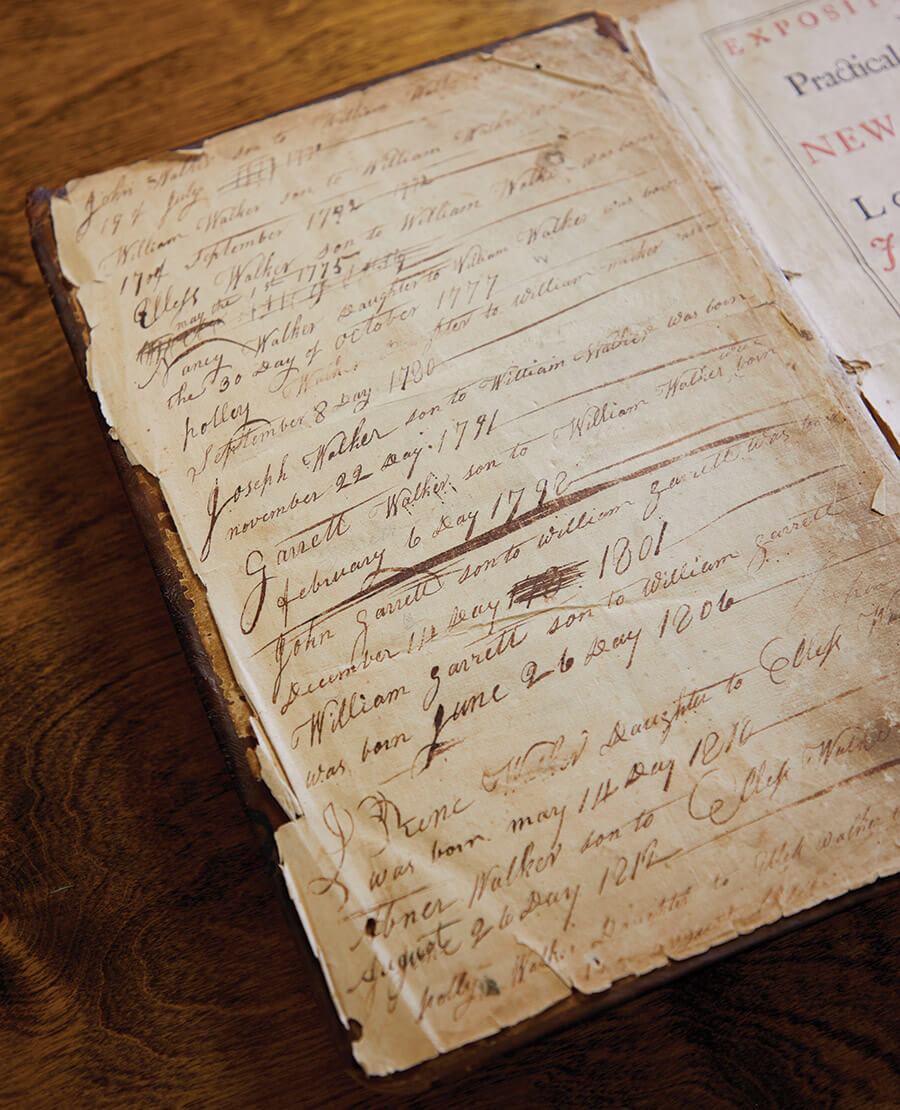 John Walker son to William Walker
19 of July
William Walker son to William Walker was born
17 of September 1772 1772
Elless Walker son to William Walker was born
may the 1st 1775
Nancy Walker Daughter to William Walker was born
the 30 Day of October 1777
polley Walker Daughter to William
September 8 Day 1780
Joseph Walker son to William Walker was born
november 22 Day 1791
Garrett Walker son to William Walker born
february 6 Day 1798
John Garrett son to William Garrett was born
December 14 Day 1801
William Garrett son to William Garrett
was born June 26 Day 1806
Irene Walker Daughter to Elless
was born may 14 Day 1810
Abner Walker son to Elless Walker
August 26 Day 1812
polly Walker Daughter to Elless Walker
EXPOSIT
Practical
NEW